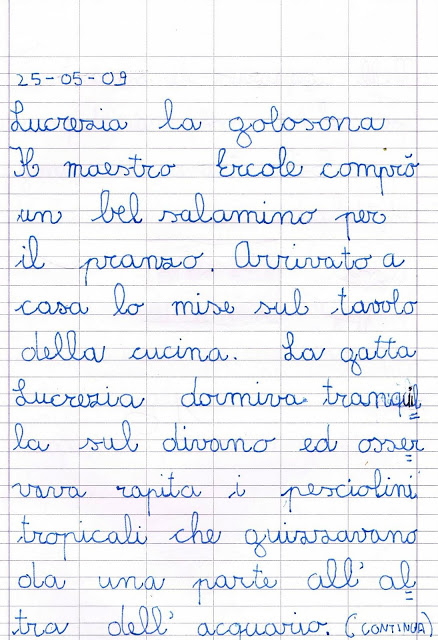 25-05-09
Lucrezia la golosona
Il maestro Ercole comprò
un bel salamino per
il pranzo. Arrivato a
casa lo mise sul tavolo
della cucina. La gatta
Lucrezia dormiva tranquil
la sul divano ed osser
vava rapita i pesciolini
tropicali che guizzavano
da una parte all'al
tra dell'acquario. (CONTINUA)